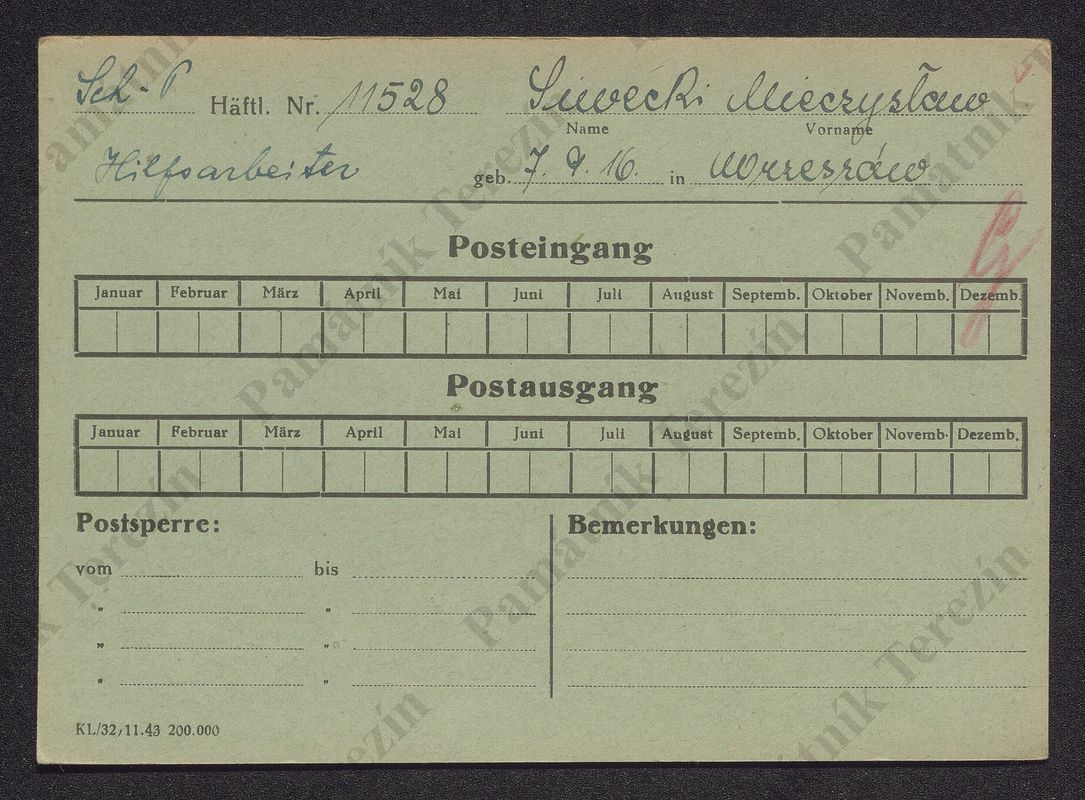 Sch - P Häftl. Nr. 11528 Siwecki Mieczysław
Name Vorname
Hilfsarbeiter geb. 7. 9. 16. in
Posteingang
Januar Februar März April Mai Juni Juli August Septemb. Oktober Novemb. Dezemb.
Postausgang
Januar Februar März April Mai Juni Juli August Septemb. Oktober Novemb. Dezemb.
Postsperre: Bemerkungen:
vom bis
" "
" "
" "
KL/32/11.43 200.000
Památník Terezín